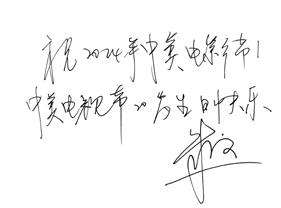 祝2024年中美电影节、
中美电视节20岁生日快乐